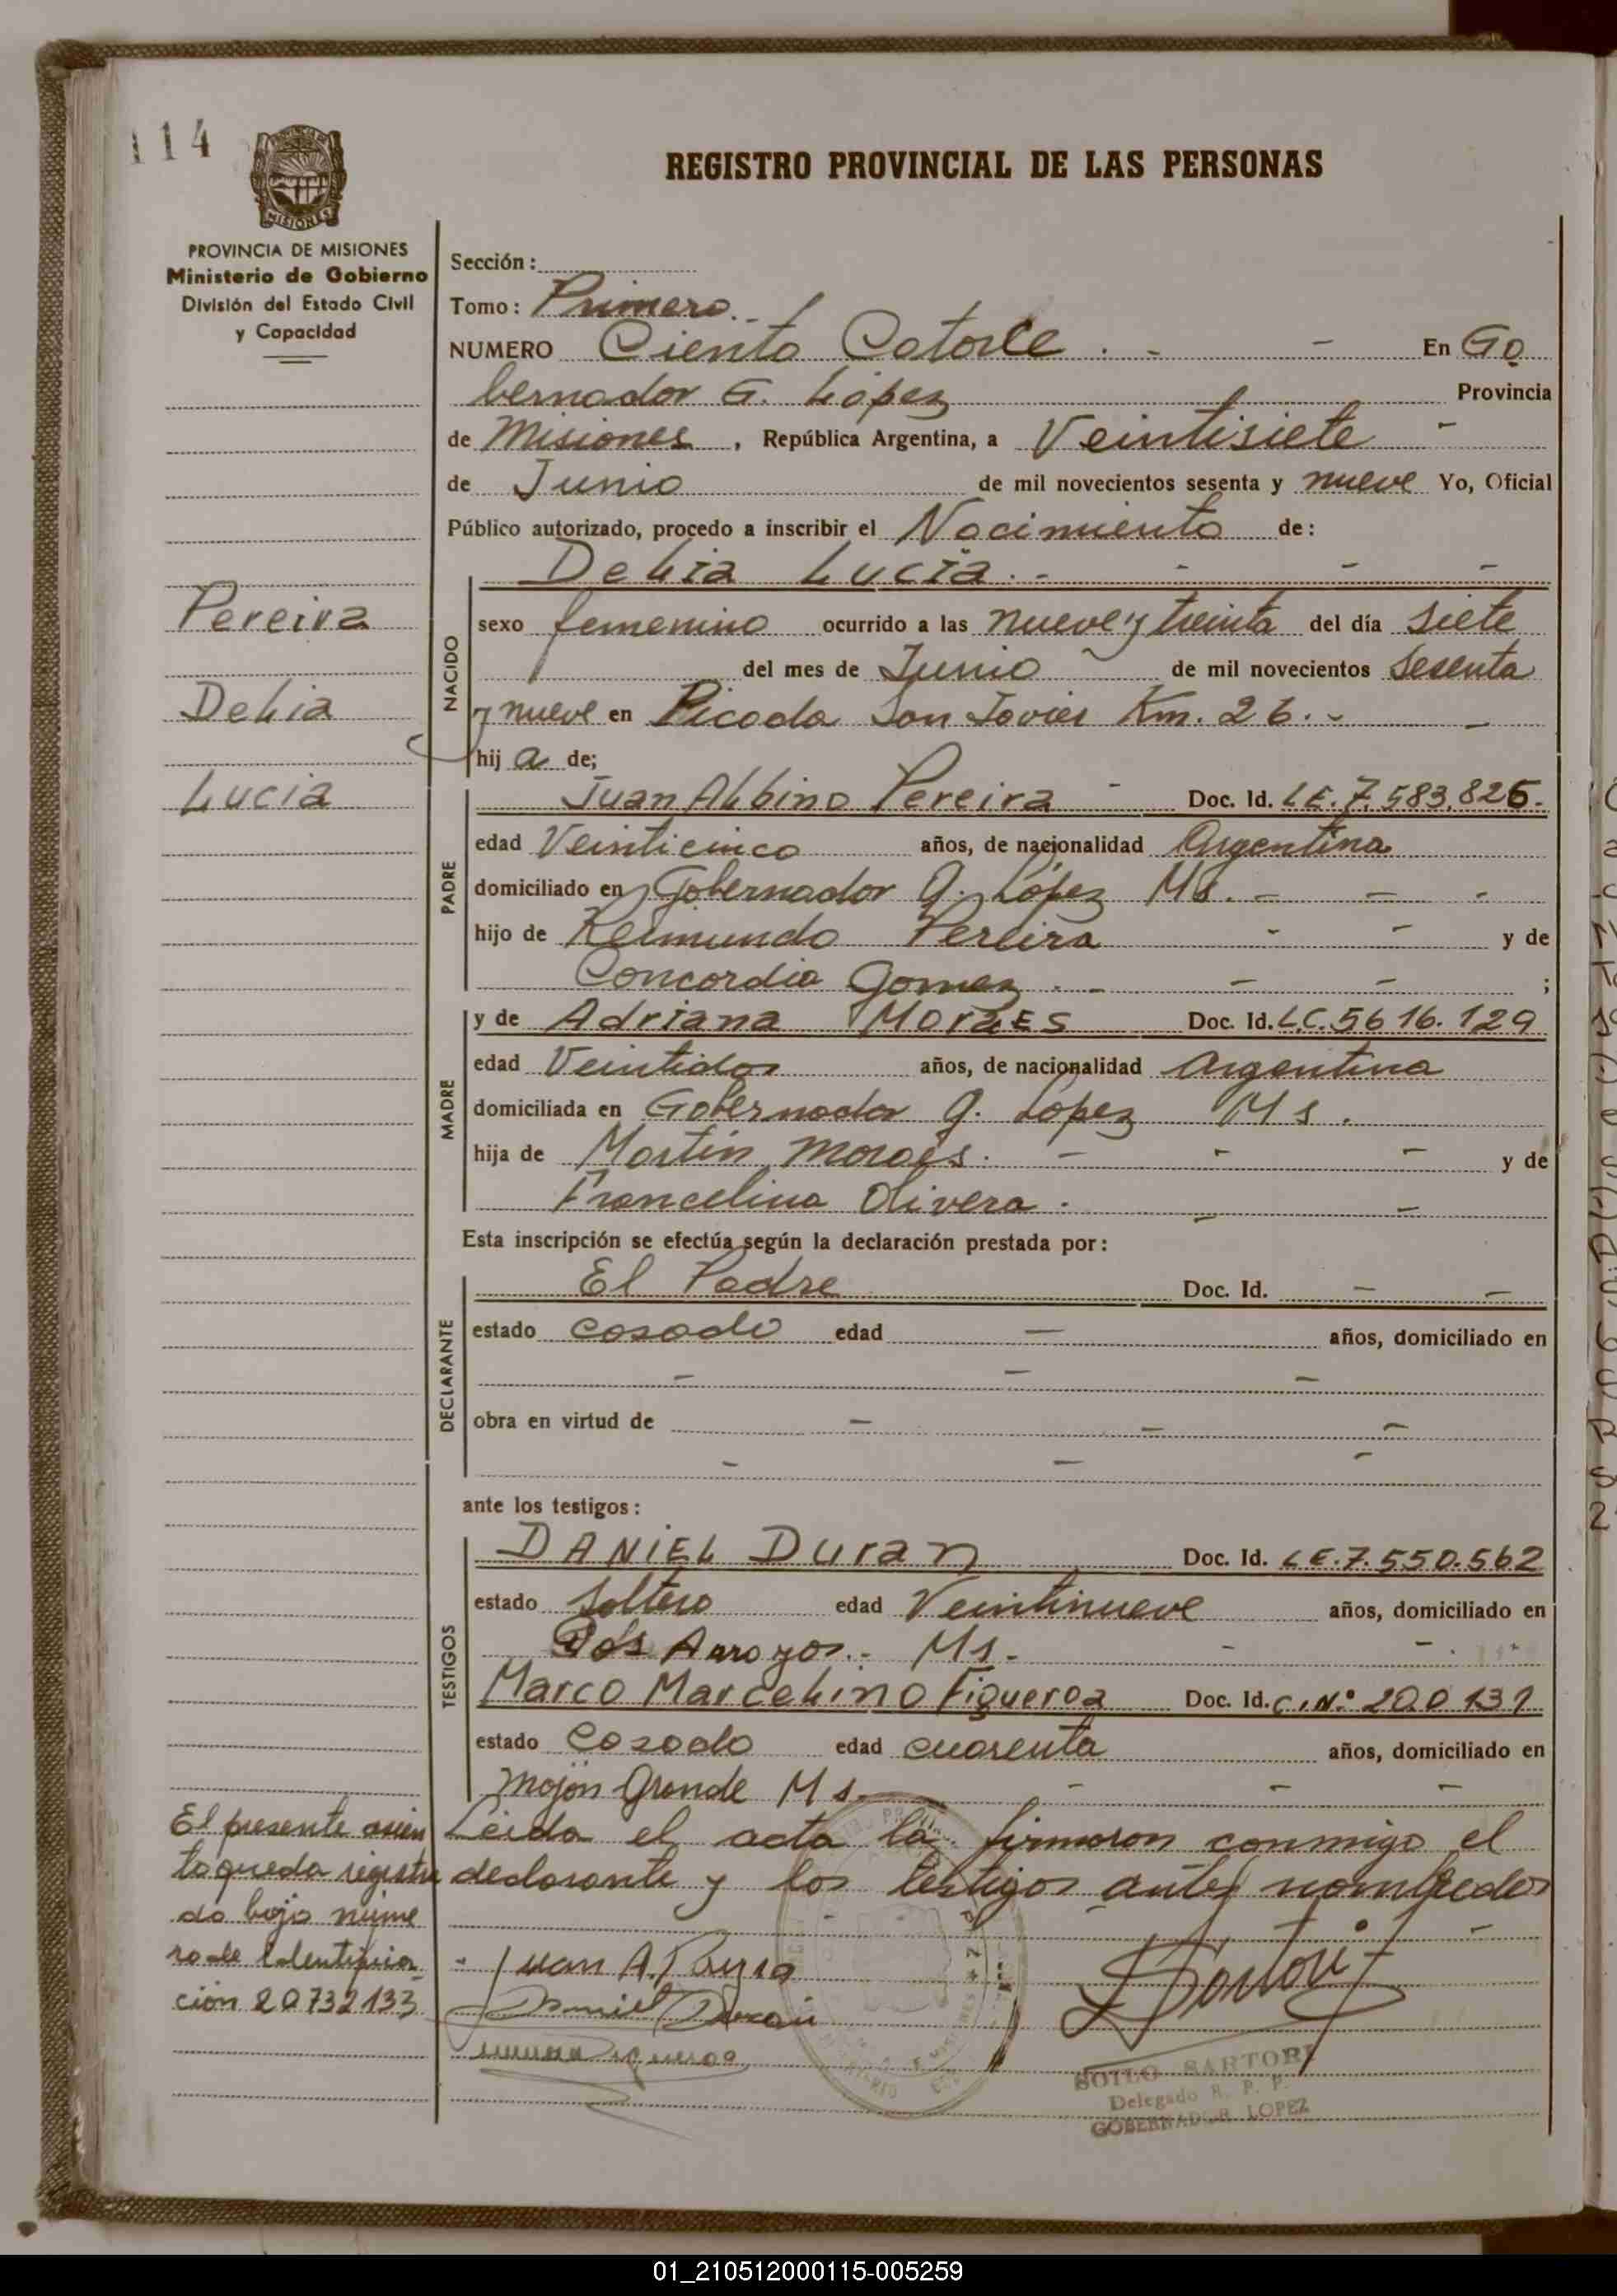 114
REGISTRO PROVINCIAL DE LAS PERSONAS
MISIONES
PROVINCIA DE MISIONES
Ministerio de Gobierno
División del Estado Civil
y Capacidad
Sección:
Tomo: Primero.
NUMERO Ciento Catorce . - - En Go
bernador G. López Provincia
de Misiones, República Argentina, a Veintisiete -
de Junio de mil novecientos sesenta y nueve Yo, Oficial
Público autorizado, procedo a inscribir el Nacimiento de:
Delia Lucía. - - - -
Pereira
Delia
Lucia
NACIDO
sexo femenino ocurrido a las nueve y treinta del día siete
del mes de Junio de mil novecientos sesenta
y nueve en Picada San Javier Km. 26. - -
hij a de;
PADRE
Juan Albino Pereira - Doc. Id. L.E. 7.583.826.-
edad Veinticinco años, de nacionalidad Argentina
domiciliado en Gobernador G. López Ms. - - -
hijo de Reimundo Pereira - - y de
Concordia Gomez . - - - ;
MADRE
y de Adriana Moraes Doc. Id. L.C. 5616.129
edad Veintidos años, de nacionalidad Argentina
domiciliada en Gobernador G. López Ms.
hija de Martin Moraes. - - - y de
Francelina Olivera . - -
Esta inscripción se efectúa según la declaración prestada por:
DECLARANTE
El Padre Doc. Id. - -
estado casado edad - años, domiciliado en
- - -
obra en virtud de - - -
- - -
ante los testigos:
TESTIGOS
DANIEL Duran Doc. Id. L.E. 7.550.562
estado Soltero edad Veintinueve años, domiciliado en
Dos Arroyos.- Ms.- - -
Marco Marcelino Figueroa Doc. Id. C.I.Nº 200131
estado Casado edad cuarenta años, domiciliado en
Mojón Grande Ms. - - -
Leida el acta la firmaron conmigo el
declarante y los testigos antes nombrados
El presente asien
to queda registra
do bajo núme
ro de Identifica
ción 20732133
Juan A. Pereira
Daniel Duran
Figueroa
SOILO SARTORI
Delegado R. P. P.
GOBERNADOR LOPEZ
01_210512000115-005259